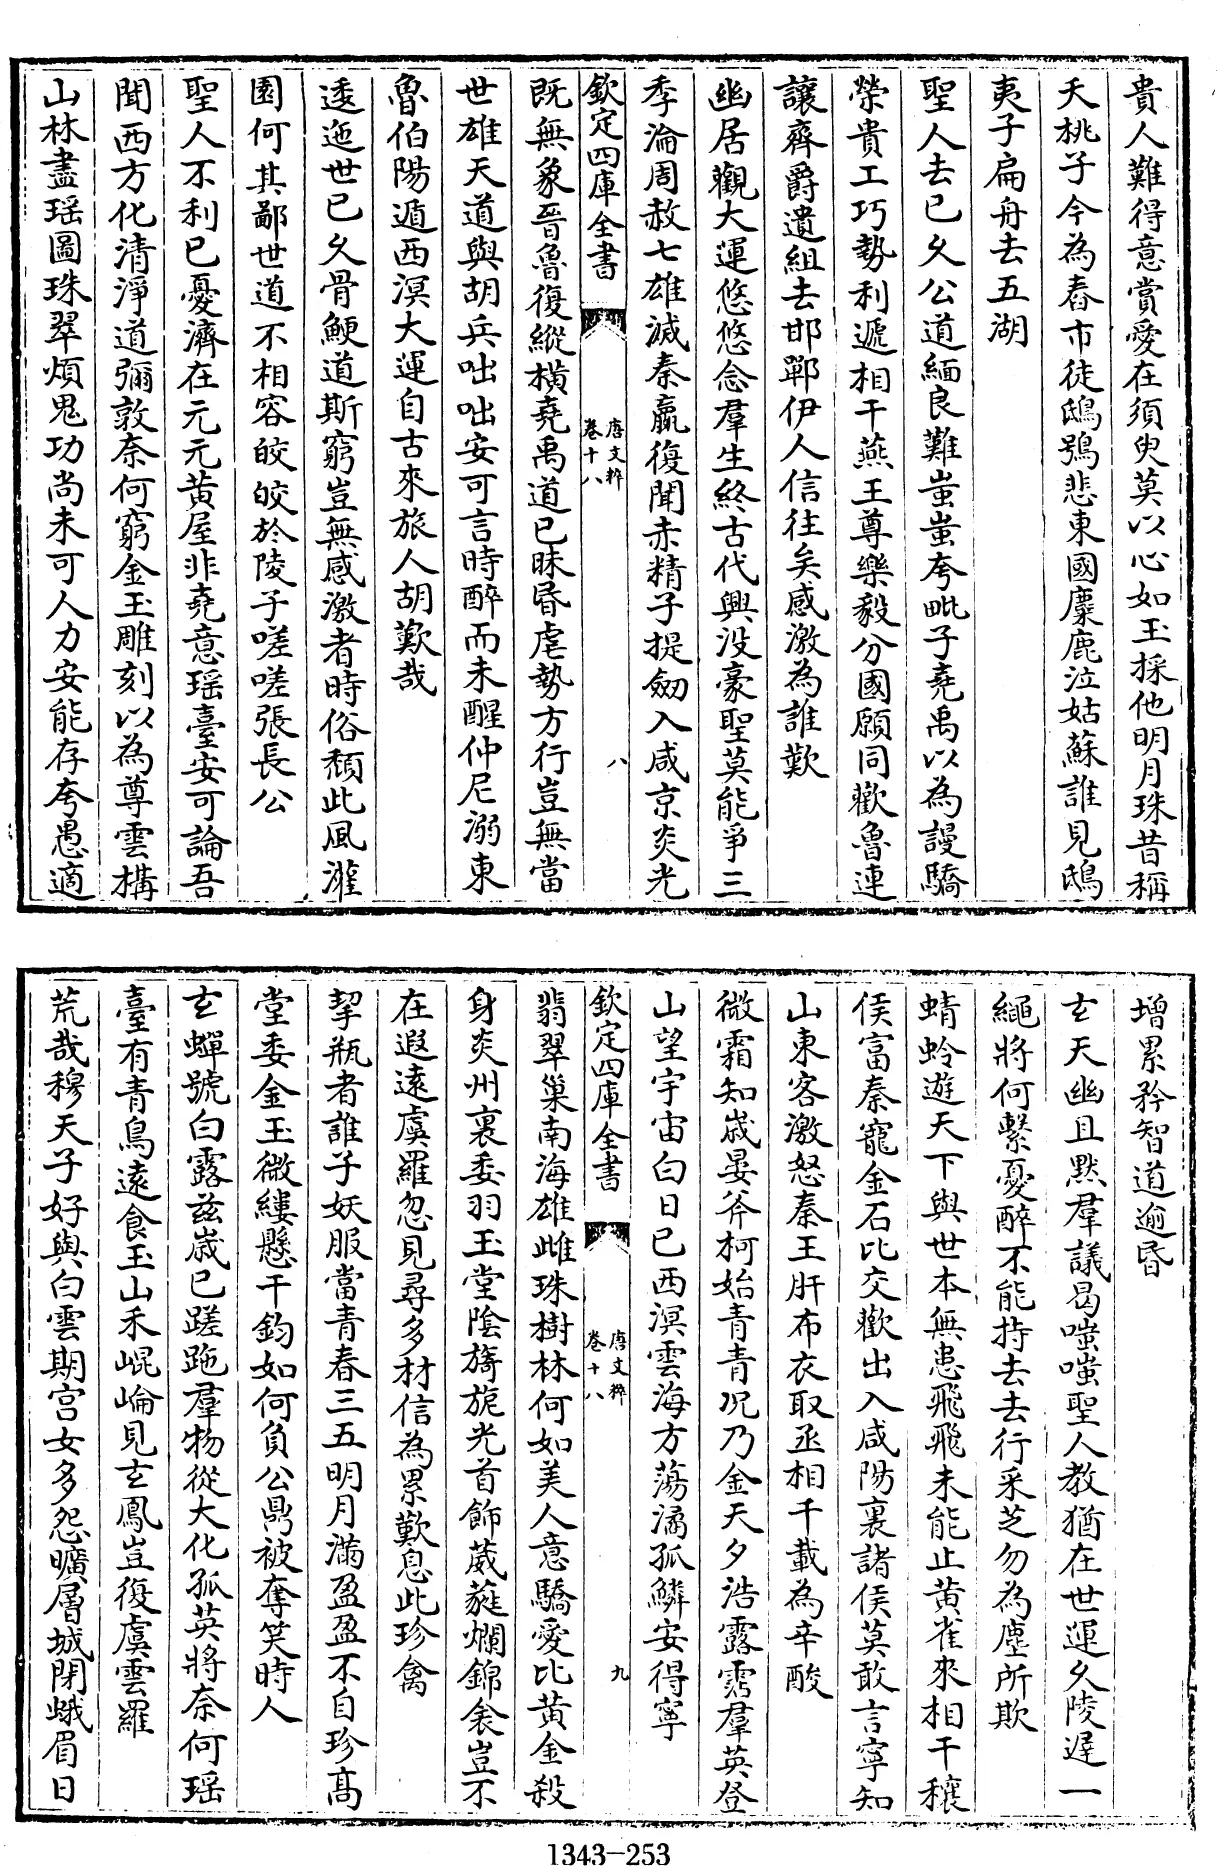 貴人難得意賞愛在須臾莫以心如玉採他明月珠昔稱
夭桃子今為舂市徒鴟鴞悲東國麋鹿泣姑蘇誰見鴟
夷子扁舟去五湖
聖人去已久公道緬良難蚩蚩夸毗子堯禹以為謾驕
榮貴工巧勢利遞相干燕王尊樂毅分國願同歡魯連
讓齊爵遺組去邯鄲伊人信往矣感激為誰歎
幽居觀大運悠悠念羣生終古代興沒豪聖莫能爭三
季淪周赦七雄滅秦嬴復聞赤精子提劒入咸京炎光
欽定四庫全書
唐文粹
卷十八
八
既無象晉魯復縱橫堯禹道已昧昏虐勢方行豈無當
世雄天道與胡兵咄咄安可言時醉而未醒仲尼溺東
魯伯陽遁西溟大運自古來旅人胡歎哉
逶迤世已久骨鯁道斯窮豈無感激者時俗頹此風灌
園何其鄙世道不相容皎皎於陵子嗟嗟張長公
聖人不利已憂濟在元元黄屋非堯意瑶臺安可論吾
聞西方化清淨道彌敦奈何窮金玉雕刻以為尊雲構
山林盡瑶圖珠翠煩鬼功尚未可人力安能存夸愚適
增累矜智道逾昏
玄天幽且黙羣議曷嗤嗤聖人教猶在世運久陵遲一
繩將何繫憂醉不能持去去行采芝勿為塵所欺
蜻蛉遊天下與世本無患飛飛未能止黄雀來相干穰
侯富秦寵金石比交歡出入咸陽裏諸侯莫敢言寧知
山東客激怒秦王肝布衣取丞相千載為辛酸
微霜知嵗晏斧柯始青青况乃金天夕浩露霑羣英登
山望宇宙白日已西溟雲海方蕩潏孤鱗安得寧
欽定四庫全書
唐文粹
卷十八
九
翡翠巢南海雄雌珠樹林何如美人意驕愛比黄金殺
身炎州裏委羽玉堂陰旖旎光首飾葳蕤爛錦衾豈不
在遐遠虞羅忽見尋多材信為累歎息此珍禽
挈瓶者誰子妖服當青春三五明月滿盈盈不自珍髙
堂委金玉微縷懸千鈞如何負公鼎被奪笑時人
玄蟬號白露兹嵗已蹉跎羣物從大化孤英將奈何瑶
臺有青鳥遠食玉山禾崐崘見玄鳳豈復虞雲羅
荒哉穆天子好與白雲期宫女多怨曠層城閉蛾眉日
1343-253